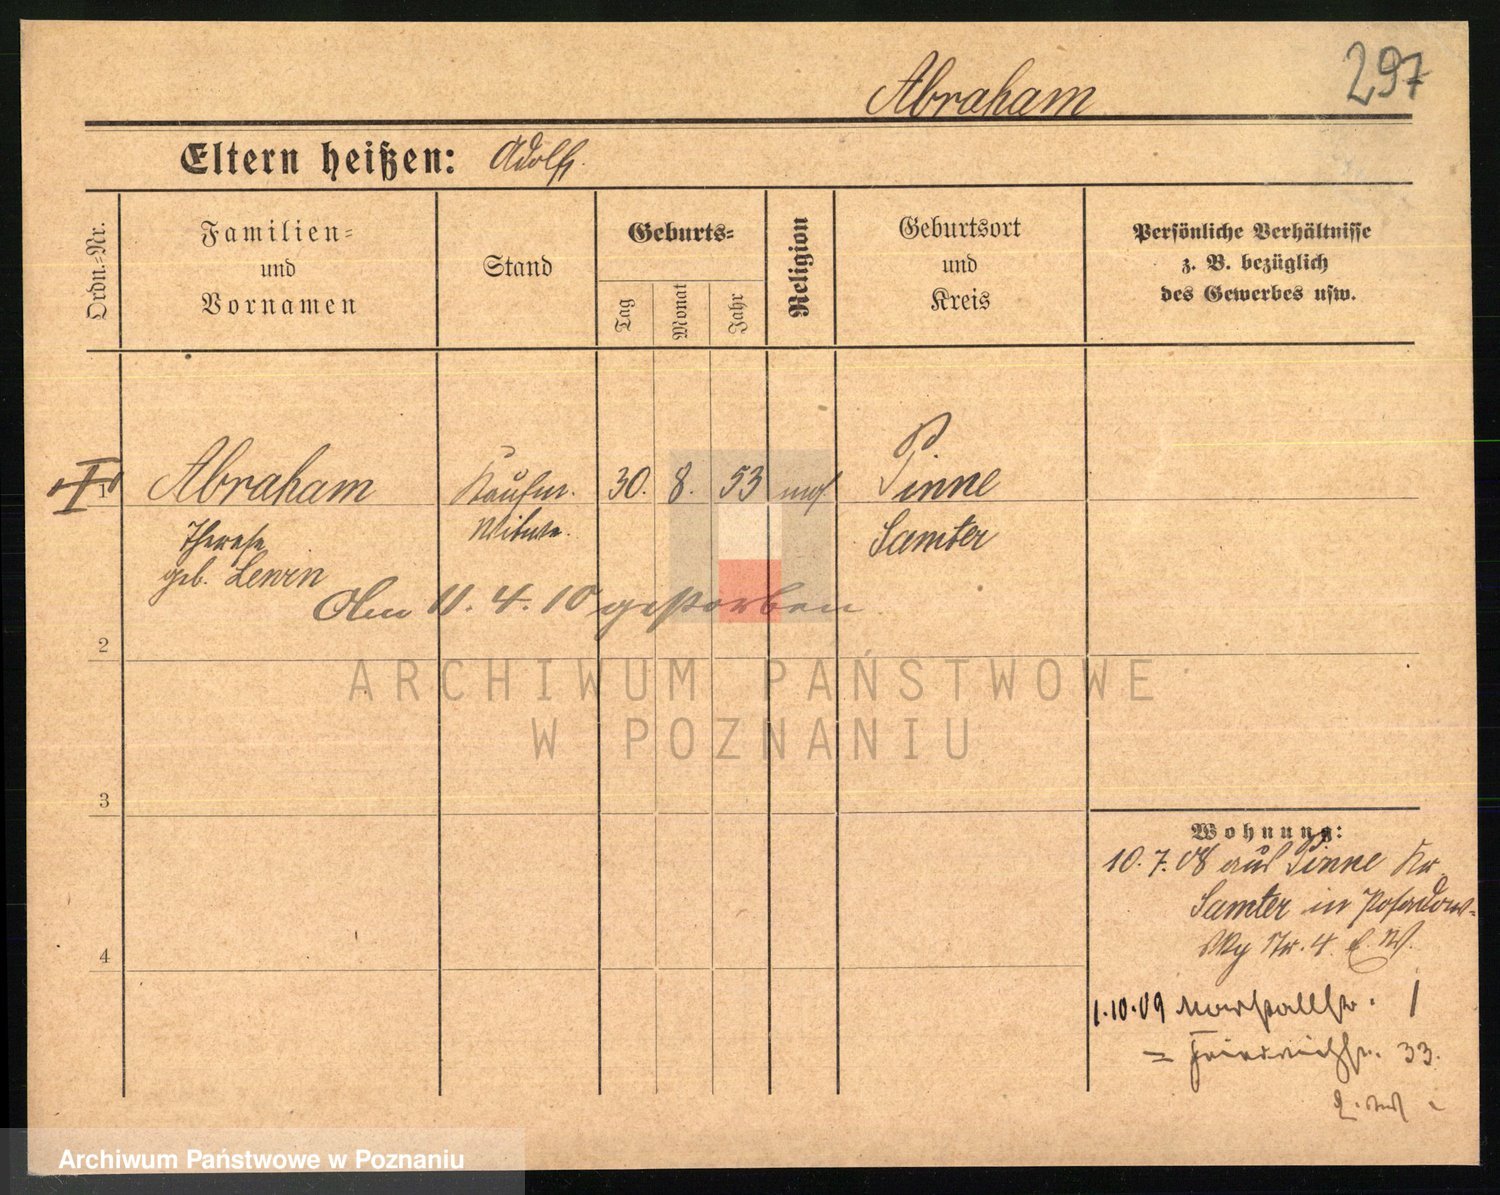 297
Abraham
Eltern heißen: Adolf.
Ordn.-Nr.
Familien-
und
Vornamen
Stand
Geburts-
Tag
Monat
Jahr
Religion
Geburtsort
und
Kreis
Persönliche Verhältnisse
z. B. bezüglich
des Gewerbes usw.
I
1 Abraham Kaufm. 30. 8. 53 mos. Pinne
Therese Witwe. Samter
geb. Lewin
Am 11. 4. 10 gestorben
2
3
4
Wohnung:
10. 7. 08 aus Pinne Kr.
Samter in Posadow-
sky Str. 4. E. W.
1.10.09 Marstallstr. 1
= Friedrichstr. 33.
ARCHIWUM PAŃSTWOWE
W POZNANIU
Archiwum Państwowe w Poznaniu